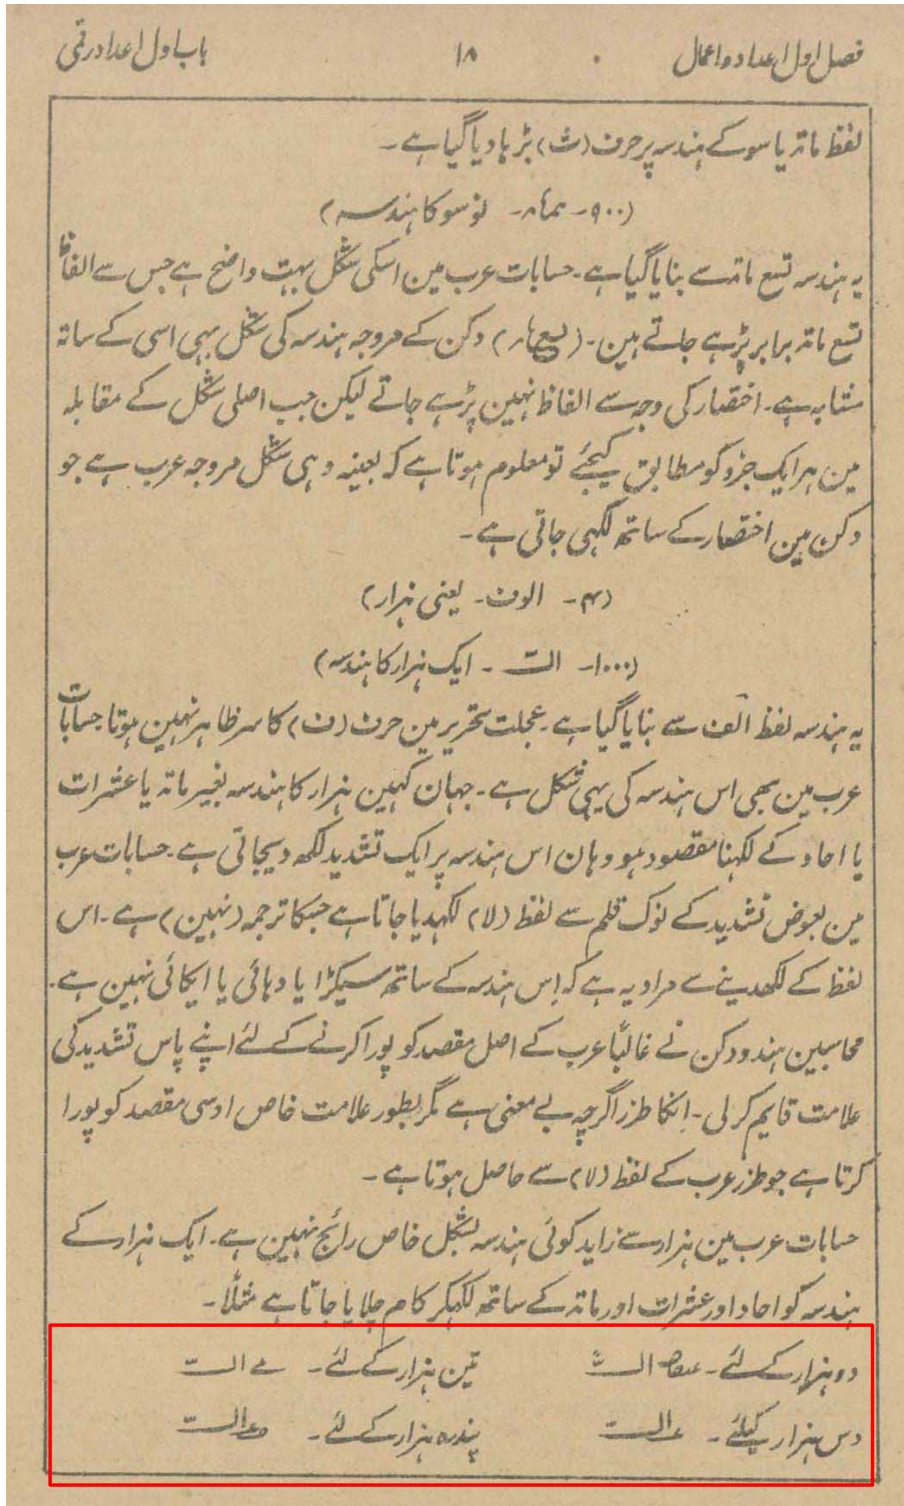 فصل اول اعداد و اعمال ۱۸ باب اول اعداد رقمی
لفظ ماتہ یا سو کے ہندسہ پر حرف (ث) بڑہا دیا گیا ہے۔
(۹۰۰۔ نو سو کا ہندسہ)
یہ ہندسہ تسع ماتہ سے بنایا گیا ہے۔ حسابات عرب مین اسکی شکل بہت واضح ہے جس سے الفاظ
تسع ماتہ برابر پڑہے جاتے ہین۔ دکن کے مروجہ ہندسہ کی شکل بہی اسی کے ساتہ
مشابہ ہے۔ اختصار کی وجہ سے الفاظ نہین پڑہے جاتے لیکن جب اصلی شکل کے مقابلہ
مین ہر ایک جزو کو مطابق کیجئے تو معلوم ہوتا ہے کہ بعینہ وہی شکل مروجہ عرب ہے جو
دکن مین اختصار کے ساتھ لکہی جاتی ہے۔
(۴۔ الوف۔ یعنی ہزار)
(۱۰۰۰۔ الت۔ ایک ہزار کا ہندسہ)
یہ ہندسہ لفظ الف سے بنایا گیا ہے۔ عجلت تحریر مین حرف (ف) کا سر ظاہر نہین ہوتا۔ حسابات
عرب مین بھی اس ہندسہ کی یہی شکل ہے۔ جہان کہین ہزار کا ہندسہ بغیر ماتہ یا عشرات
یا احاد کے لکہنا مقصود ہو وہان اس ہندسہ پر ایک تشدید لکھ دیجاتی ہے۔ حسابات عرب
مین بعوض تشدید کے نوک قلم سے لفظ (لا) لکہدیا جاتا ہے جسکا ترجمہ (نہین) ہے۔ اس
لفظ کے لکھدینے سے مراد یہ ہے کہ اِس ہندسہ کے ساتھ سیکڑا یا دہائی یا ایکائی نہین ہے۔
محاسبین ہند و دکن نے غالباً عرب کے اصل مقصد کو پورا کرنے کے لئے اپنے پاس تشدید کی
علامت قایم کرلی۔ اِنکا طرز اگرچہ بے معنی ہے مگر بطور علامت خاص اوسی مقصد کو پورا
کرتا ہے جو طرز عرب کے لفظ (لا) سے حاصل ہوتا ہے۔
حسابات عرب مین ہزار سے زاید کوئی ہندسہ بشکل خاص رائج نہین ہے۔ ایک ہزار کے
ہندسہ کو احاد اور عشرات اور ماتہ کے ساتھ لکہکر کام چلایا جاتا ہے مثلاً۔
دو ہزار کے لئے۔ تین ہزار کے لئے۔
دس ہزار کیلئے۔ پندرہ ہزار کے لئے۔